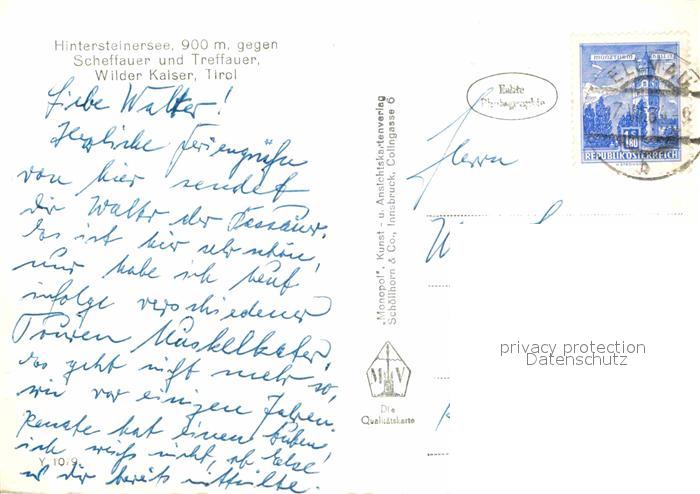 Hintersteinersee, 900 m, gegen
Scheffauer und Treffauer,
Wilder Kaiser, Tirol
Liebe Walter!
Herzliche Feriengrüße
von hier sendet
dir Walter der Passauer.
Es ist hier sehr schön,
nur habe ich heut
infolge verschiedener
Touren Muskelkater,
es geht nicht mehr so,
wie vor einigen Jahren.
Renate hat einen Buben!
ich weiß nicht, ob Else
es dir bereits mitteilte.
Y 10/9
"Monopol", Kunst - u. Ansichtskartenverlag
Schöllhorn & Co., Innsbruck, Colingasse 6
Echte
Photographie
MÜNZTURM HALL I.T.
S 1.80
REPUBLIK ÖSTERREICH
Herrn
privacy protection
Datenschutz
M V
Die
Qualitätskarte